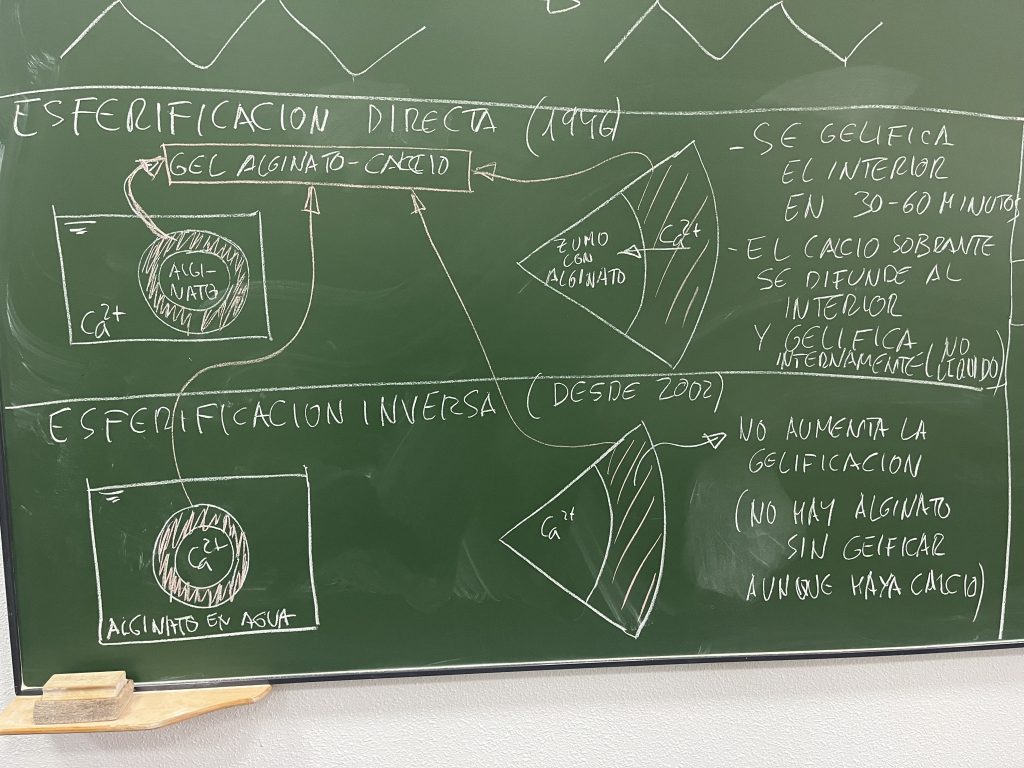 ESFERIFICACION DIRECTA (1946)
GEL ALGINATO-CALCIO
ALGI-
NATO
Ca2+
ZUMO
CON
ALGINATO
Ca2+
- SE GELIFICA
EL INTERIOR
EN 30-60 MINUTOS
- EL CALCIO SOBRANTE
SE DIFUNDE AL
INTERIOR
Y GELIFICA
INTERNAMENTE (NO
LIQUIDO)
ESFERIFICACION INVERSA (DESDE 2002)
Ca2+
ALGINATO EN AGUA
Ca2+
NO AUMENTA LA
GELIFICACION
(NO HAY ALGINATO
SIN GEIFICAR
AUNQUE HAYA CALCIO)